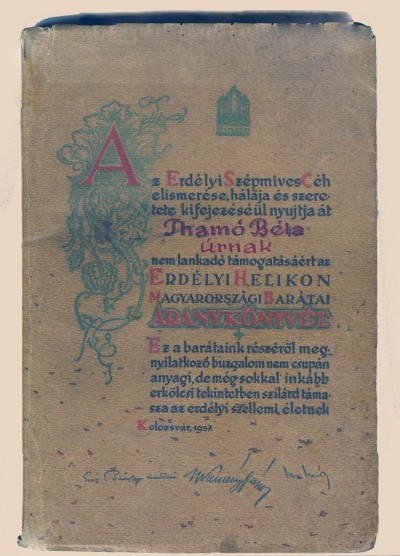 Az Erdélyi Szépmives Céh
elismerése, hálája és szere-
tete kifejezéséül nyujtja át
Thamó Béla
úrnak
nem lankadó támogatásáért az
ERDÉLYI HELIKON
MAGYARORSZÁGI BARÁTAI
ARANYKÖNYVÉT
Ez a barátaink részéről meg-
nyilatkozó buzgalom nem csupán
anyagi, de még sokkal inkább
erkölcsi tekintetben szilárd táma-
sza az erdélyi szellemi életnek
Kolozsvár, 1937